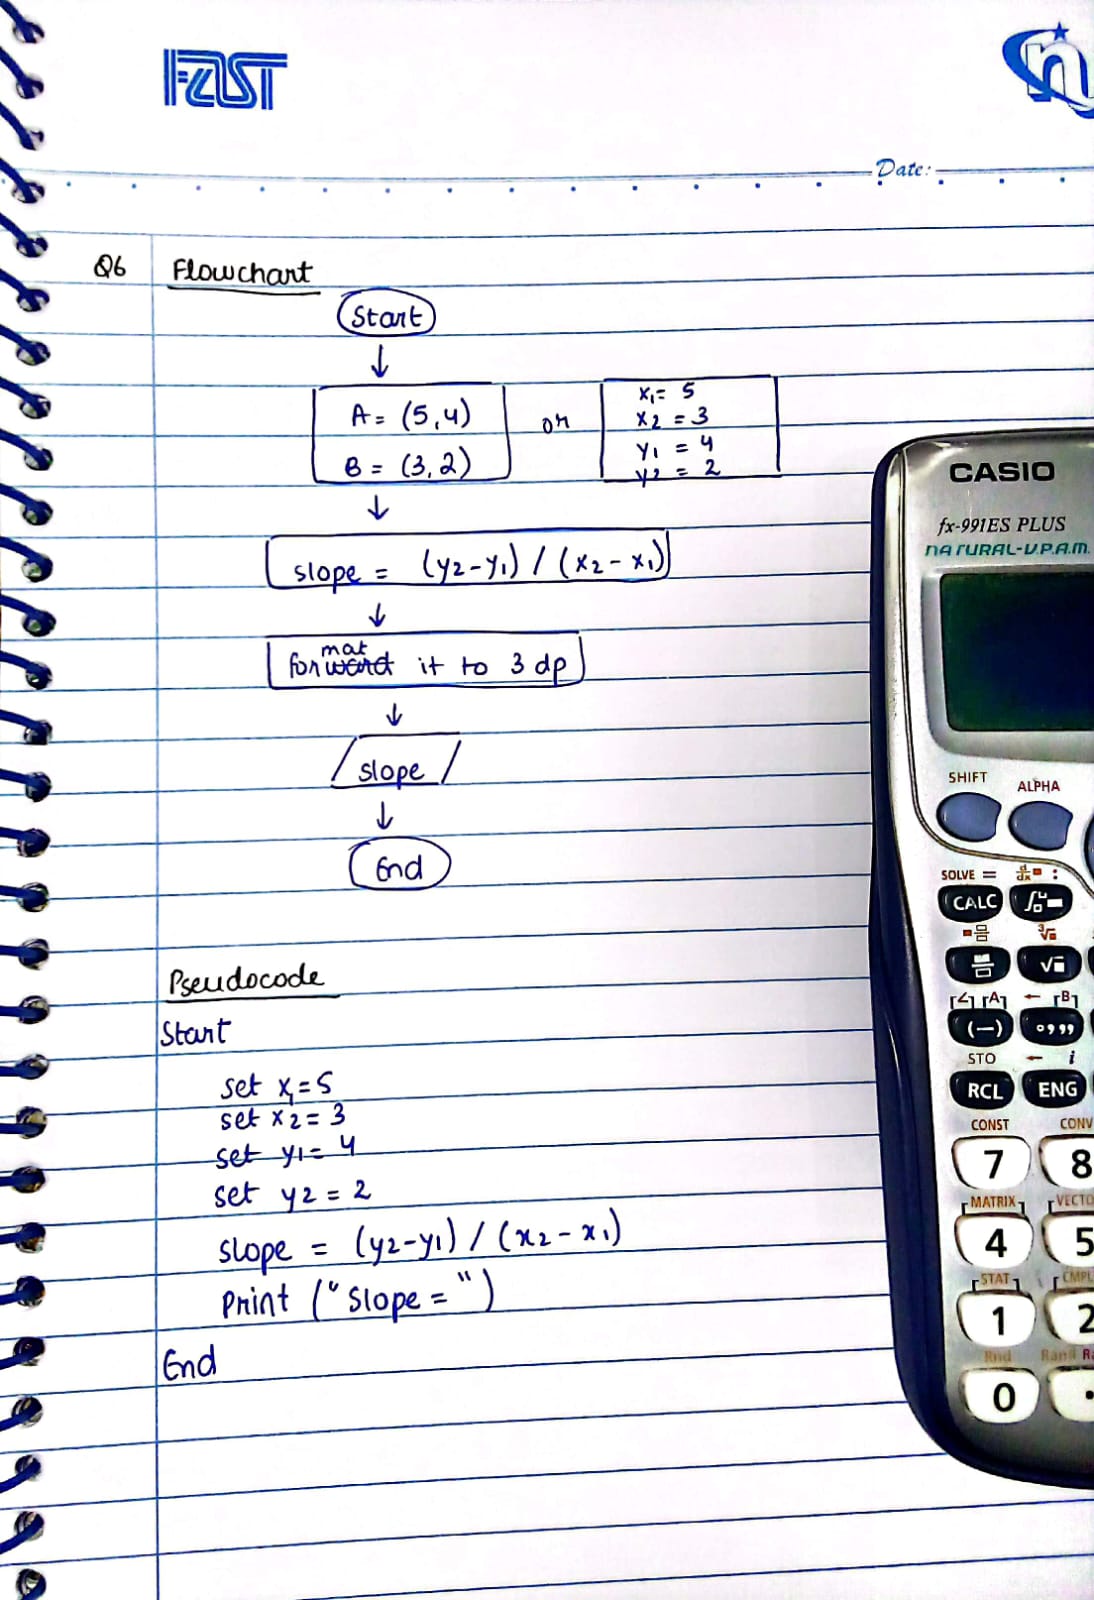 FAST
n
Date:
Q6 Flowchart
Start
↓
A = (5,4)
B = (3,2)
or
x1 = 5
x2 = 3
y1 = 4
y2 = 2
↓
slope = (y2-y1) / (x2 - x1)
↓
mat
forward it to 3 dp
↓
slope
↓
End
Pseudocode
Start
set x1 = 5
set x2 = 3
set y1 = 4
set y2 = 2
slope = (y2-y1) / (x2 - x1)
Print ("Slope = ")
End
CASIO
fx-991ES PLUS
NATURAL-V.P.A.M.
SHIFT ALPHA
SOLVE = d/dx :
CALC
√
∠ A ← B
(−) ° ’ ”
STO ← i
RCL ENG
CONST CONV
7 8
MATRIX VECTO
4 5
STAT CMPL
1 2
Rnd Ran# Ra
0 .